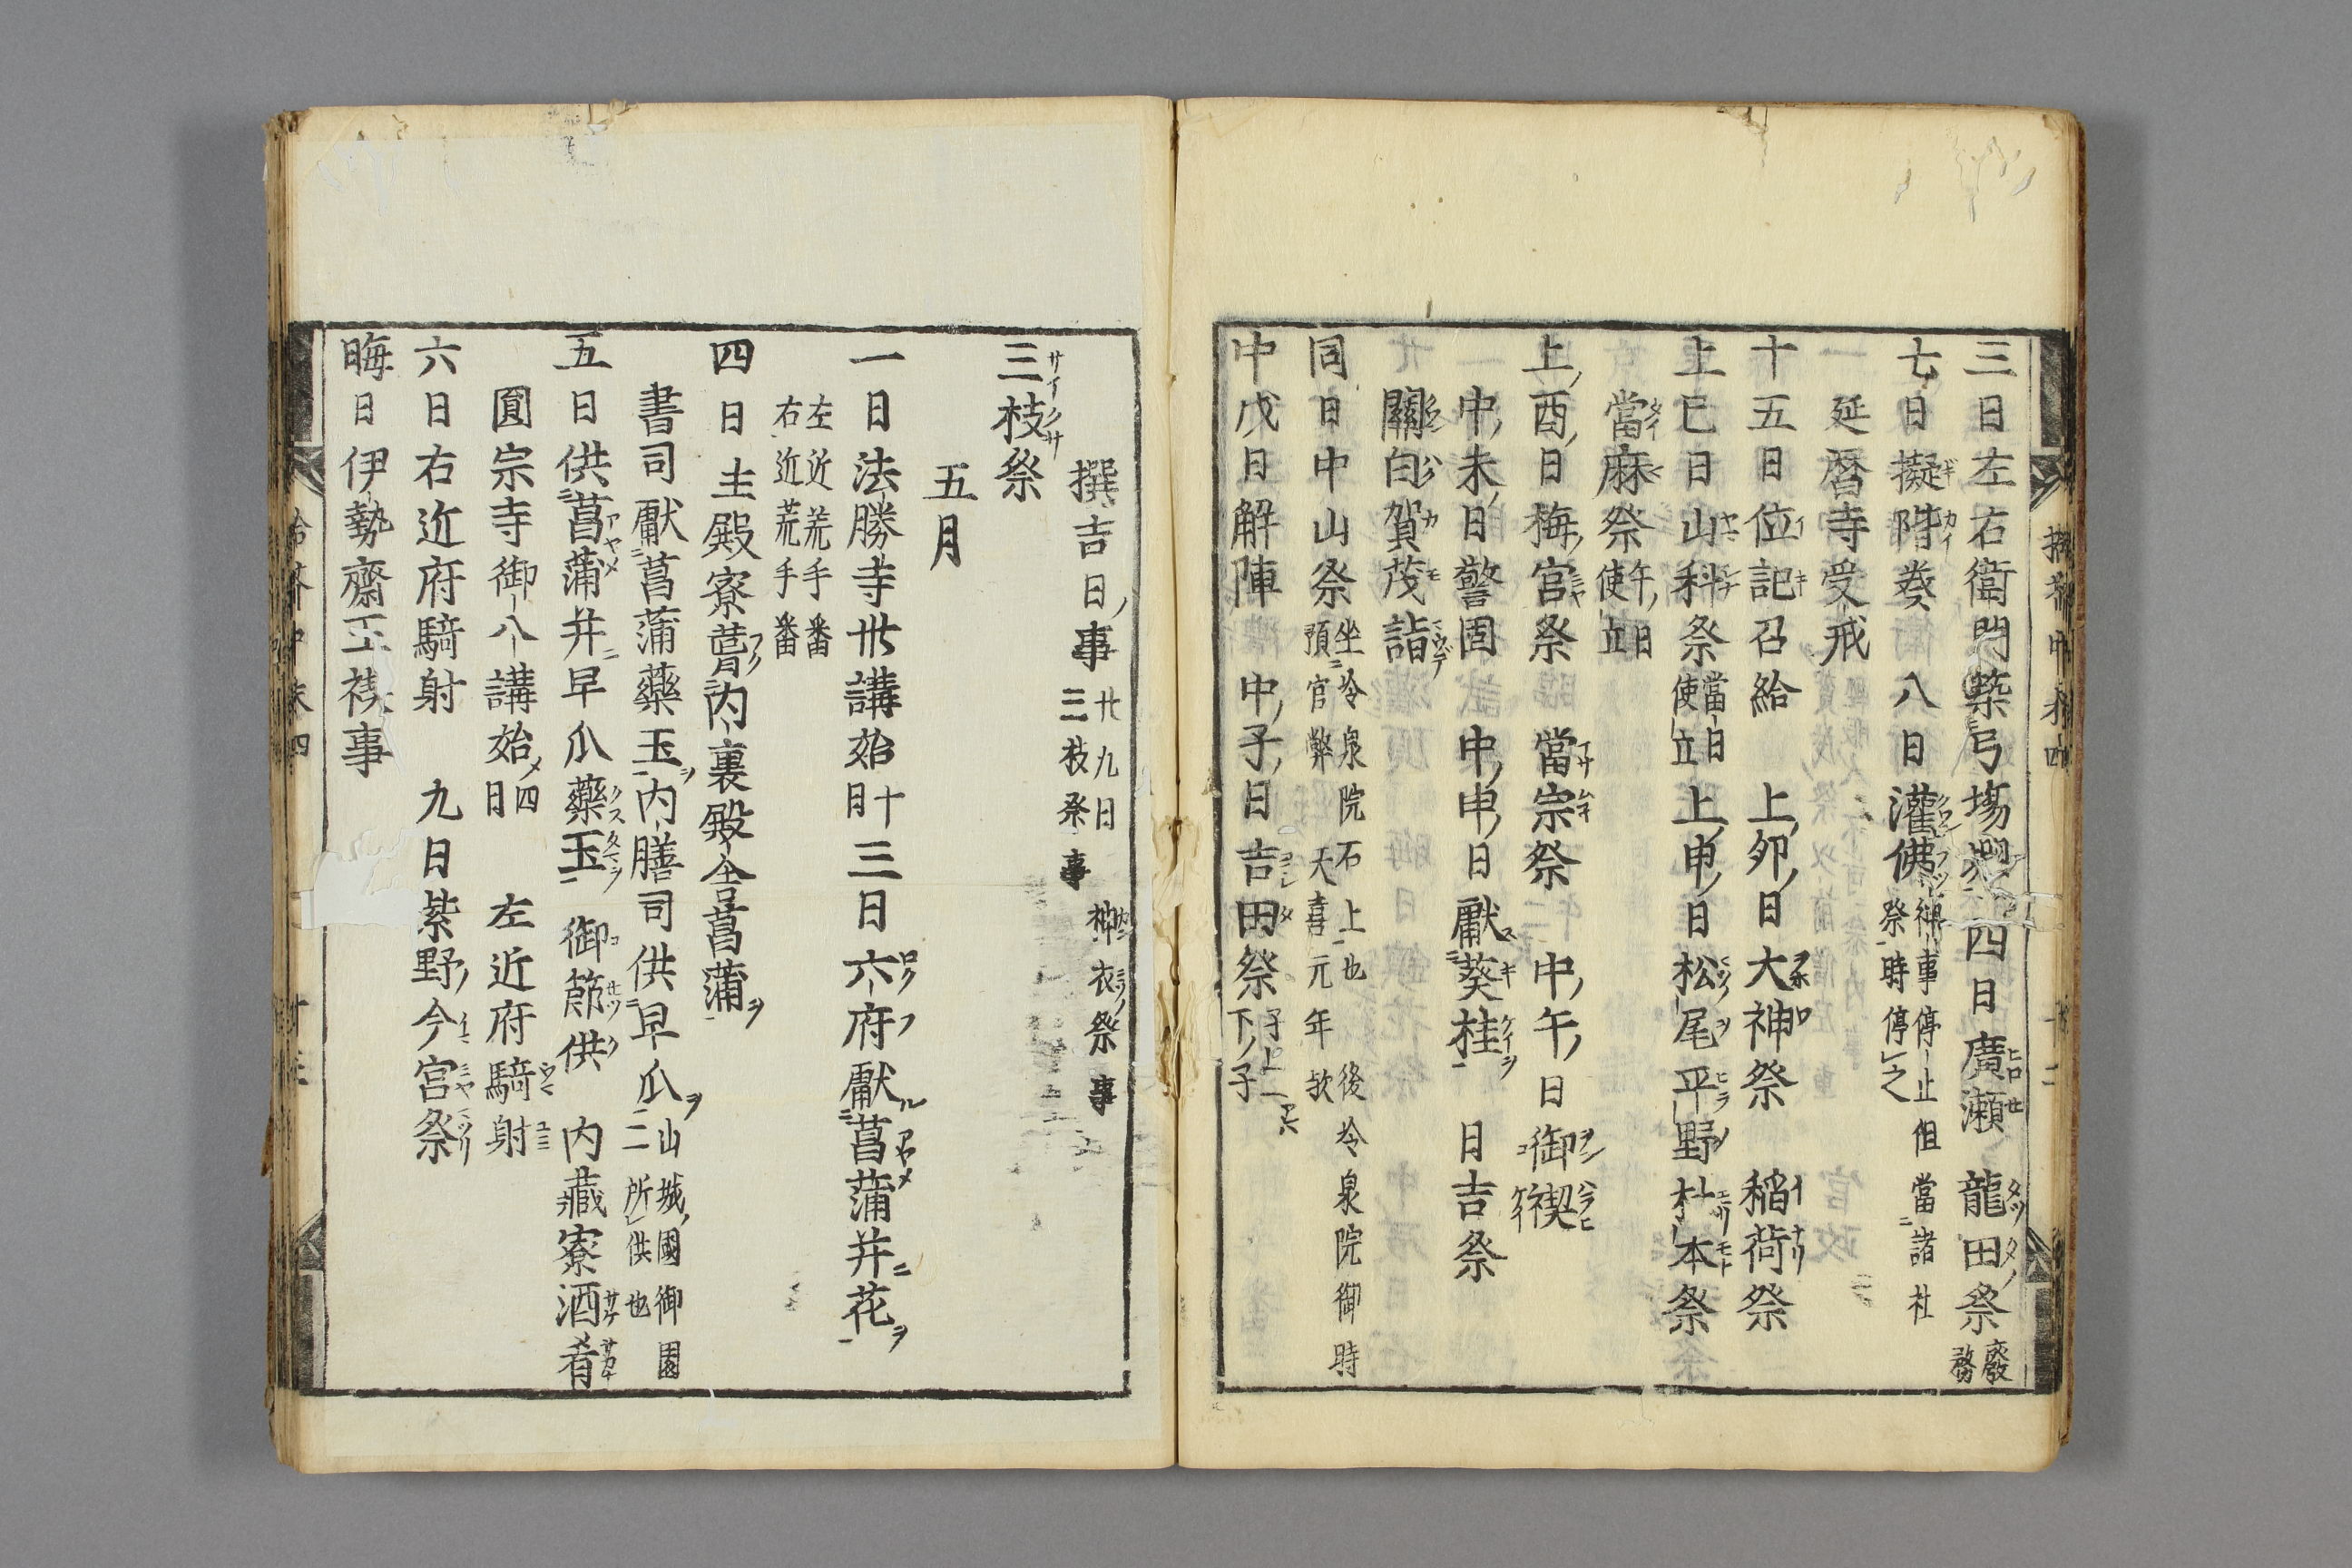 三日左右衛門築弓場 四日廣瀬 龍田祭廢務
七日擬階奏 八日灌佛神事停止但當諸社祭時停之
延暦寺受戒
十五日位記召給 上卯日大神祭 稲荷祭
上巳日山科祭當日使立 上申日松尾平野杜本祭
當麻祭午日使立
上酉日梅宮祭 當宗祭 中午日御禊
中未日警固 中申日獻葵桂 日吉祭
關白賀茂詣
同日中山祭坐冷泉院石上也後冷泉院御時預官幣天喜元年歟
中戌日解陣 中子日吉田祭
撰吉日事廿九日三枝祭事神衣祭事
三枝祭
五月
一日法勝寺卅講始十日 三日六府獻菖蒲并花
左近荒手番
右近荒手番
四日主殿寮葺内裏殿舎菖蒲
書司獻菖蒲藥玉内膳司供早瓜山城國御園二所供也
五日供菖蒲并早瓜藥玉 御節供 内藏寮酒肴
圓宗寺御八講始四日 左近府騎射
六日右近府騎射 九日紫野今宮祭
晦日伊勢齋王禊事